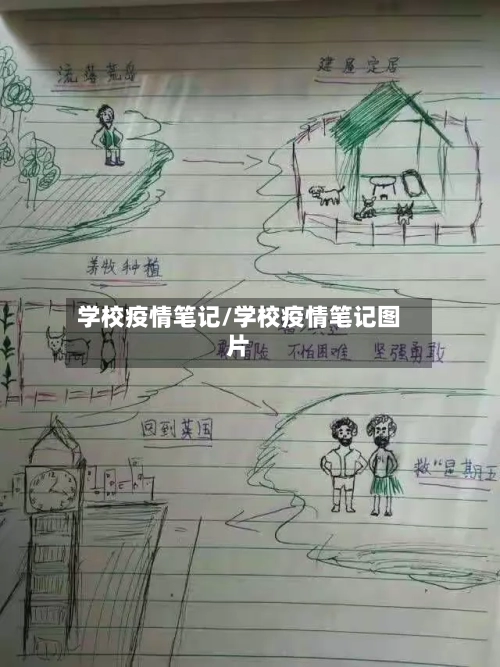 流落荒岛
建屋定居
养牧种植
学校疫情笔记/学校疫情笔记图
片
不怕困难 坚强勇敢
回到英国
救"星期五